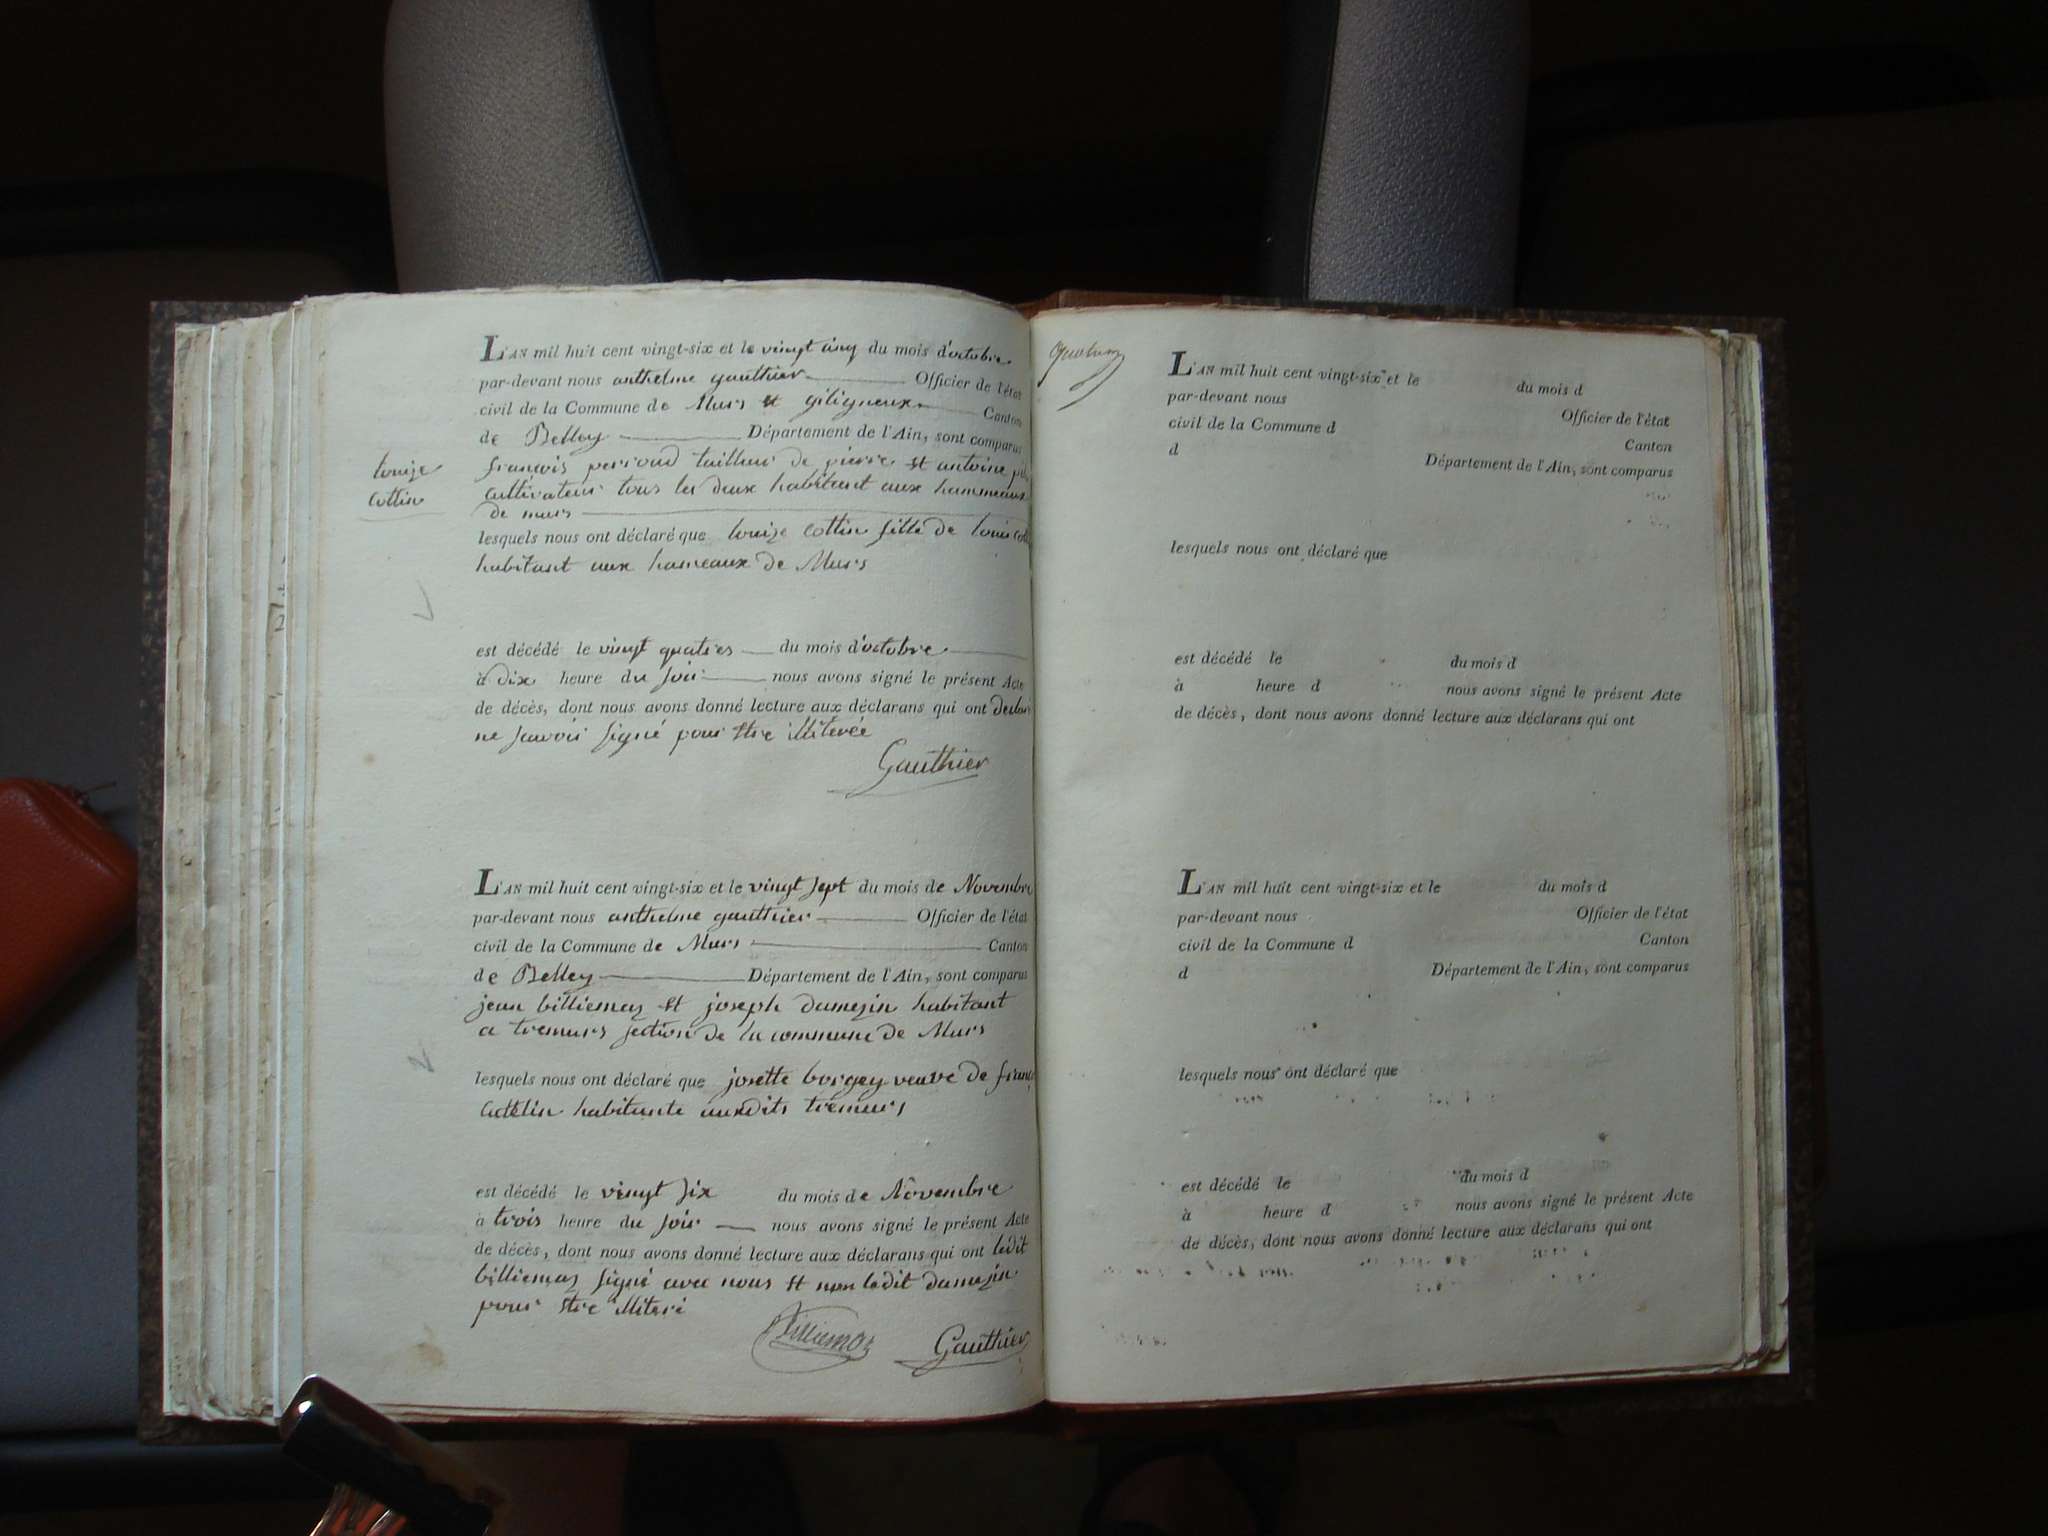 L'AN mil huit cent vingt-six et le vingt cinq du mois d'octobre
par-devant nous anthelme gauthier Officier de l'état
civil de la Commune de Murs et giligneux Canton
de Belley Département de l'Ain, sont comparus
françois perroud tailleur de pierre et antoine
cultivateur tous les deux habitant aux hammeaux
de murs
louize
cottin
lesquels nous ont déclaré que louize cottin fille de louis
habitant aux hameaux de Murs
est décédé le vingt quatres du mois d'octobre
à dix heure du soir nous avons signé le présent Acte
de décès, dont nous avons donné lecture aux déclarans qui ont
ne savoir signé pour être illiterée
Gauthier
L'AN mil huit cent vingt-six et le vingt sept du mois de Novembre
par-devant nous anthelme gauthier Officier de l'état
civil de la Commune de Murs Canton
de Belley Département de l'Ain, sont comparus
jean billiemaz et joseph damezin habitant
a tremurs section de la commune de Murs
lesquels nous ont déclaré que josette borgey veuve de
cottin habitante auxdits tremurs
est décédé le vingt six du mois de Novembre
à trois heure du soir nous avons signé le présent Acte
de décès, dont nous avons donné lecture aux déclarans qui ont ledit
billiemaz signé avec nous et non ledit damezin
pour être illiteré
Billiemaz Gauthier
L'AN mil huit cent vingt-six et le du mois d
par-devant nous Officier de l'état
civil de la Commune d Canton
d Département de l'Ain, sont comparus
lesquels nous ont déclaré que
est décédé le du mois d
à heure d nous avons signé le présent Acte
de décès, dont nous avons donné lecture aux déclarans qui ont
L'AN mil huit cent vingt-six et le du mois d
par-devant nous Officier de l'état
civil de la Commune d Canton
d Département de l'Ain, sont comparus
lesquels nous ont déclaré que
est décédé le du mois d
à heure d nous avons signé le présent Acte
de décès, dont nous avons donné lecture aux déclarans qui ont